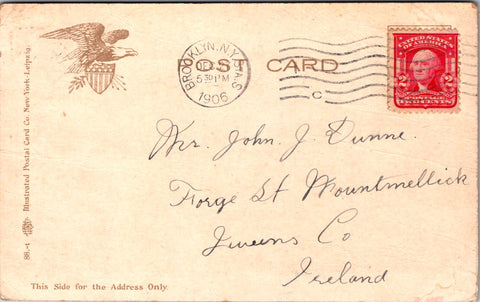 POST CARD
BROOKLYN, N.Y.
5 30 PM
1906
C
UNITED STATES
OF AMERICA
2 2
POSTAGE
TWO CENTS
Mr. John J. Dunne.
Forge St Mountmellick
Queens Co
Ireland
86.-1 Illustrated Postal Card Co. New-York. Leipzig.
This Side for the Address Only.